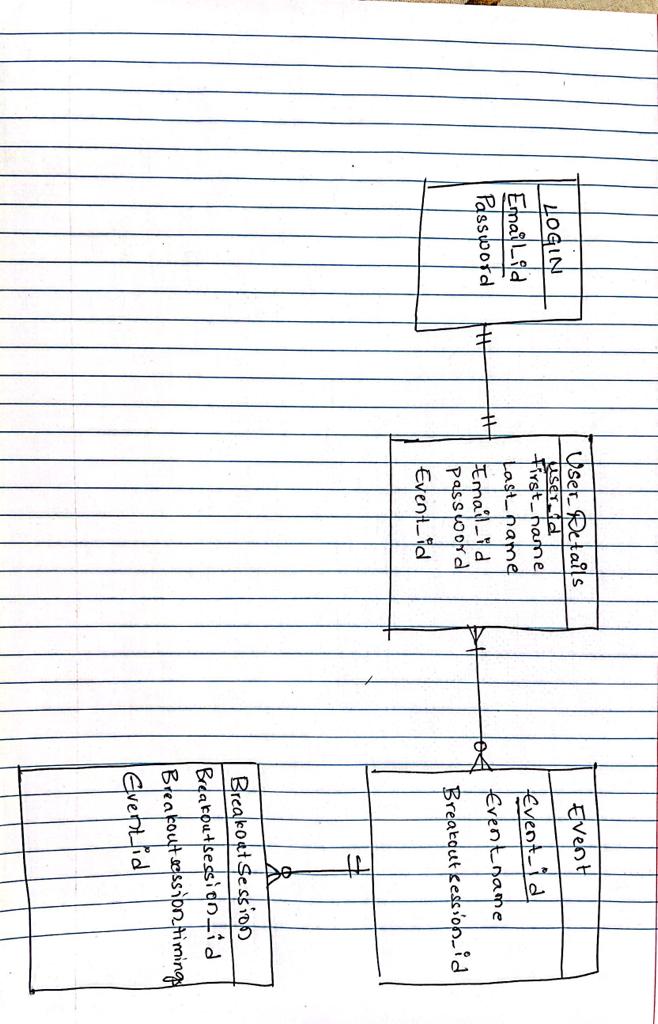 LOGIN
Email_id
Password
User_Details
user_id
First_name
Last_name
Email_id
Password
Event_id
Event
Event_id
Event_name
Breakoutsession_id
BreakoutSession
Breakoutsession_id
Breakoutsession_timings
Event_id